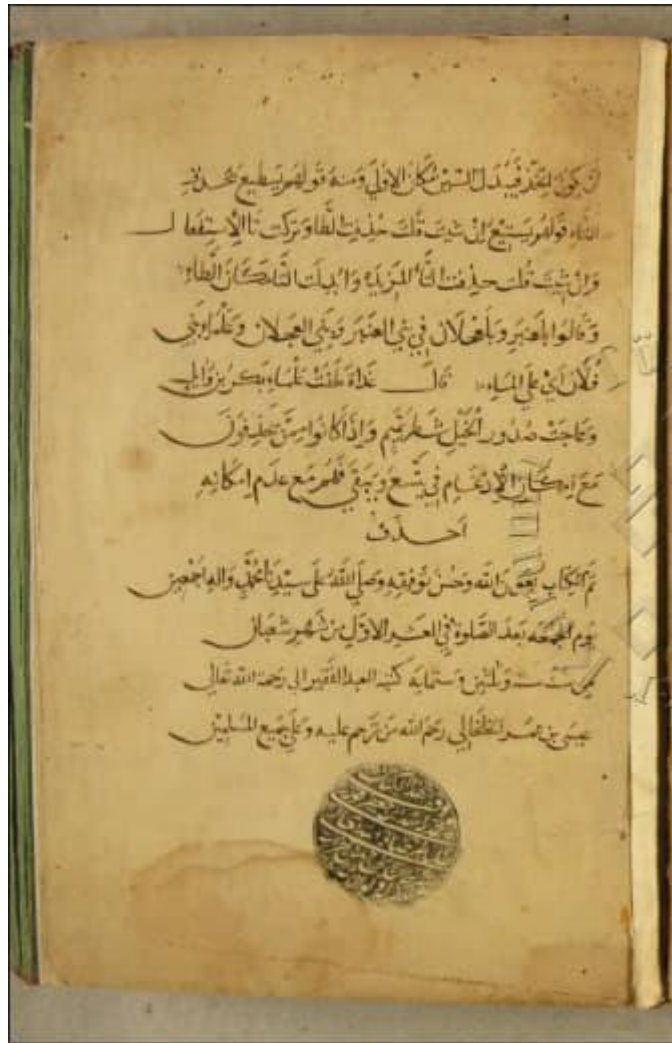 ان يكون اتخذ فيبدل السين مكان الاولى ومنه قولهم يسطيع بحذف
التاء وقولهم يستيع ان شيت قلت حذفت الطا وتركت تا الاستفعال
وان شيت قلت حذفت التا المزيده وابدلت التا مكان الطاء
وقالوا بلعنبر وبلعجلان في بني العنبر وبني العجلان وعلماء بني
فلان اي علي الماء قال غداة طفت علماء بكر بن وايل
وعاجت صدور الخيل شطر تميم واذا كانوا ممن يحذفون
مع امكان الادغام في يتسع ويتقي فهم مع عدم امكانه
احذف
تم الكتاب بعون الله وحسن توفيقه وصلي الله علي سيدنا محمد واله اجمعين
يوم الجمعه بعد الصلوة في العشر الاول من شهر شعبان
سنة ست وثلثين وستمايه كتبه العبد الفقير الى رحمة الله تعالى
عيسى بن رحم الله من ترحم عليه وعلي جميع المسلمين